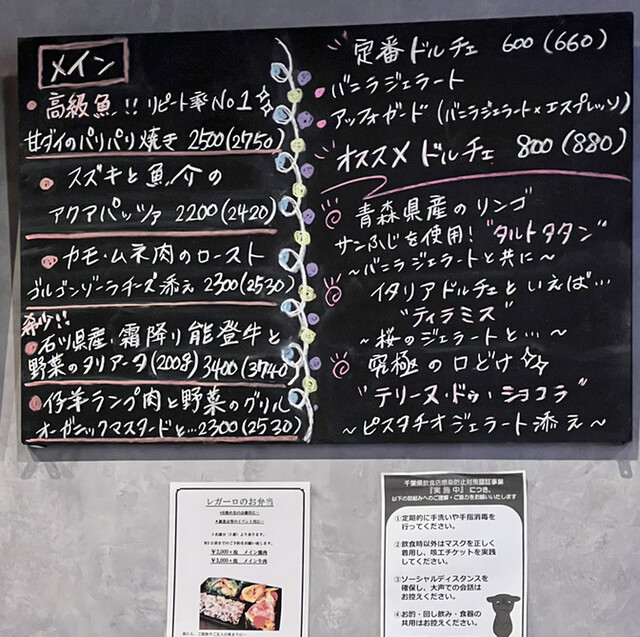 メイン
・高級魚!! リピート率No1
甘ダイのパリパリ焼き 2500(2750)
・スズキと魚介の
アクアパッツァ 2200(2420)
・カモ・ムネ肉のロースト
ゴルゴンゾーラチーズ添え 2300(2530)
希少!!
・石川県産、霜降り能登牛と
野菜のタリアータ(200g) 3400(3740)
・仔羊ランプ肉と野菜のグリル
オーガニックマスタードと… 2300(2530)
定番ドルチェ 600(660)
・バニラジェラート
・アッフォガード(バニラジェラート×エスプレッソ)
オススメドルチェ 800(880)
青森県産のリンゴ
サンふじを使用!"タルトタタン"
~バニラジェラートと共に~
イタリアドルチェといえば…
"ティラミス"
~桜のジェラートと…~
究極の口どけ
"テリーヌ・ドゥ・ショコラ"
~ピスタチオジェラート添え~
レガーロのお弁当
¥2,000+税 メイン鶏肉
¥3,000+税 メイン牛肉
千葉県飲食店感染防止対策認証事業
『実施中』につき、
以下の取組みへのご理解・ご協力をお願いいたします
①定期的に手洗いや手指消毒を
行ってください。
②飲食時以外はマスクを正しく
着用し、咳エチケットを実践
してください。
③ソーシャルディスタンスを
確保し、大声での会話は
お控えください。
④お酌・回し飲み・食器の
共用はお控えください。